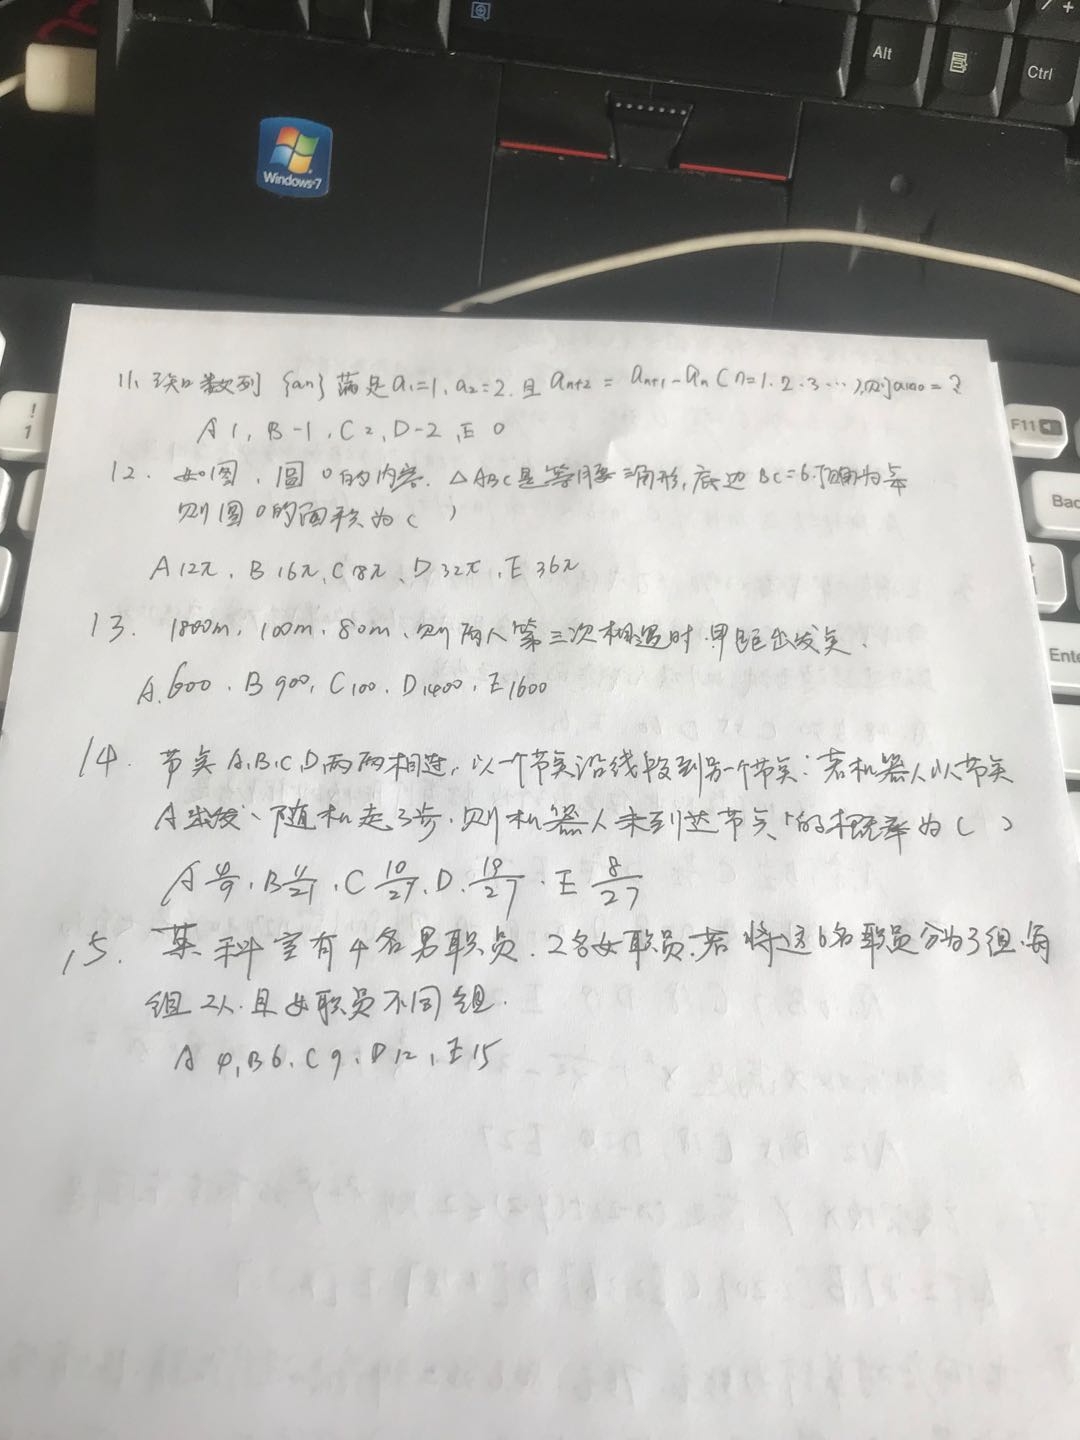 Alt
Ctrl
Windows 7
! 1
F11
Bac
Ente
11. 已知数列 {an} 满足a1=1, a2=2. 且 an+2 = an+1-an (n=1.2.3…),则a100=?
A 1, B -1, C 2, D -2, E 0
12. 如图, 圆O的内容. △ABC是等腰三角形, 底边 BC=6.顶角为
则圆O的面积为( )
A 12π, B 16π, C 18π, D 32π, E 36π
13. 1800m, 100m, 80m, 则两人第三次相遇时.甲距出发点.
A.600. B 900, C 100. D 1400, E 1600
14. 节点A.B.C.D两两相连, 以一个节点沿线段到另一个节点: 若机器人从节点
A出发、随机走3步.则机器人未到达节点 的概率为( )
A 4/9. B , C 10/27, D. 19/27. E 8/27
15. 某科室有4名男职员.2名女职员.若将这6名职员分为3组.每
组2人.且女职员不同组.
A 4, B 6, C 9, D 12, E 15